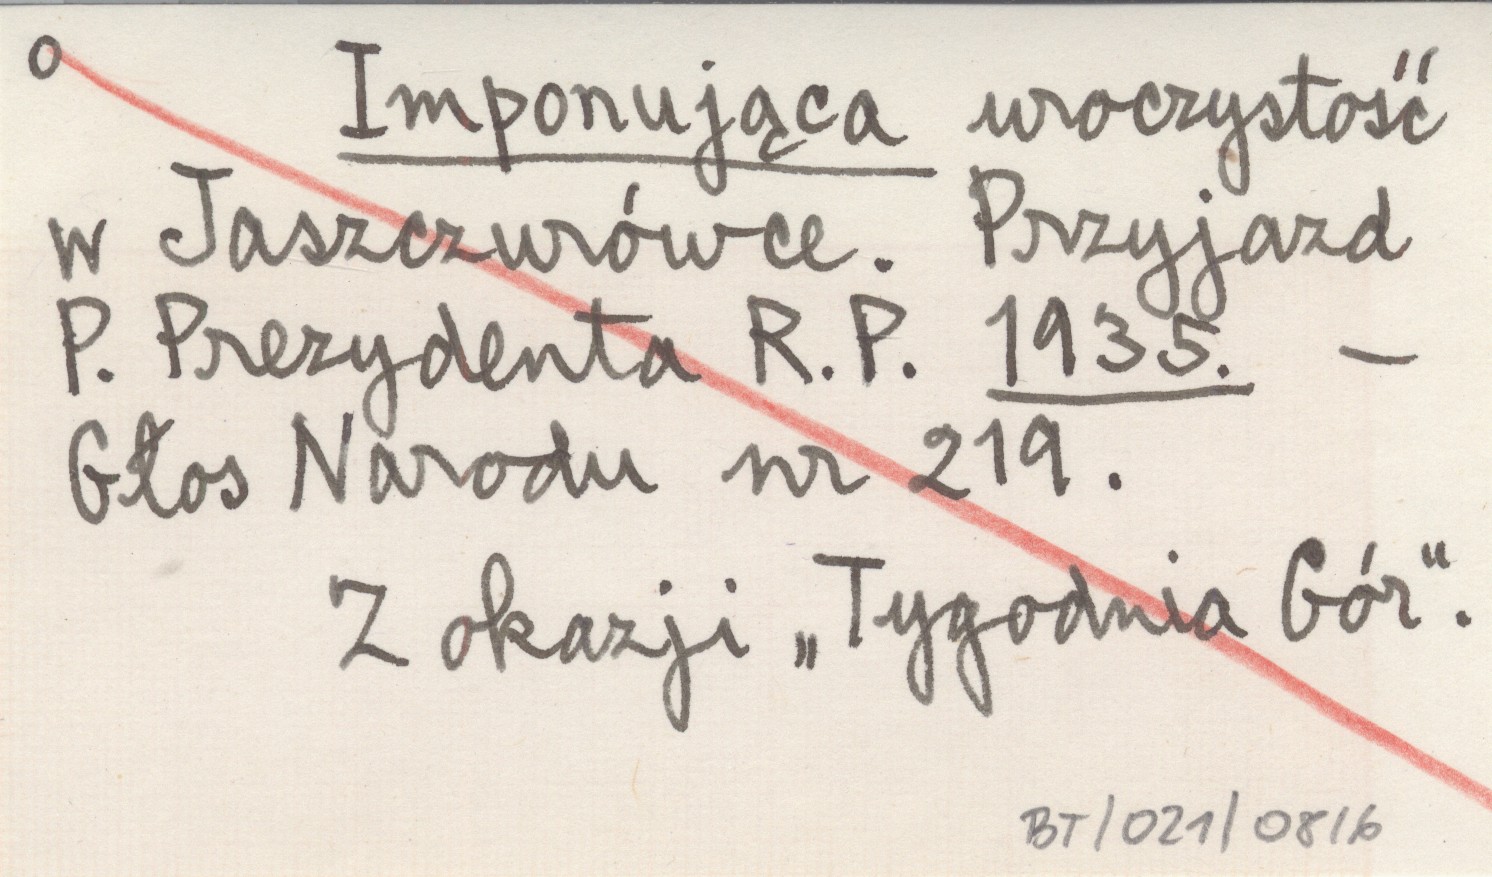 o Imponująca uroczystość
w Jaszczurówce. Przyjazd
P. Prezydenta R.P. 1935. —
Głos Narodu nr 219.
Z okazji „Tygodnia Gór".
BT/021/0816